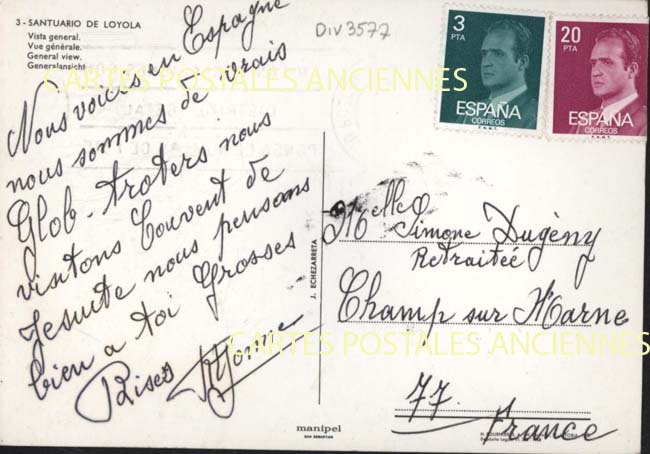 3 - SANTUARIO DE LOYOLA
Vista general.
Vue générale.
General view.
Generalansicht
DIV3577
3
PTA
ESPAÑA
CORREOS
F.N.M.T.
20
PTA
ESPAÑA
CORREOS
F.N.M.T.
CARTES POSTALES ANCIENNES
Nous voici en Espagne
nous sommes de vrais
Glob-troters nous
visitons Couvent de
Jesuite nous pensons
bien a toi Grosses
Bises Yvonne
J. ECHEZARRETA
Melle Simone Dugény
Retraitée
Champ sur Marne
77.
France
CARTES POSTALES ANCIENNES
manipel
SAN SEBASTIAN